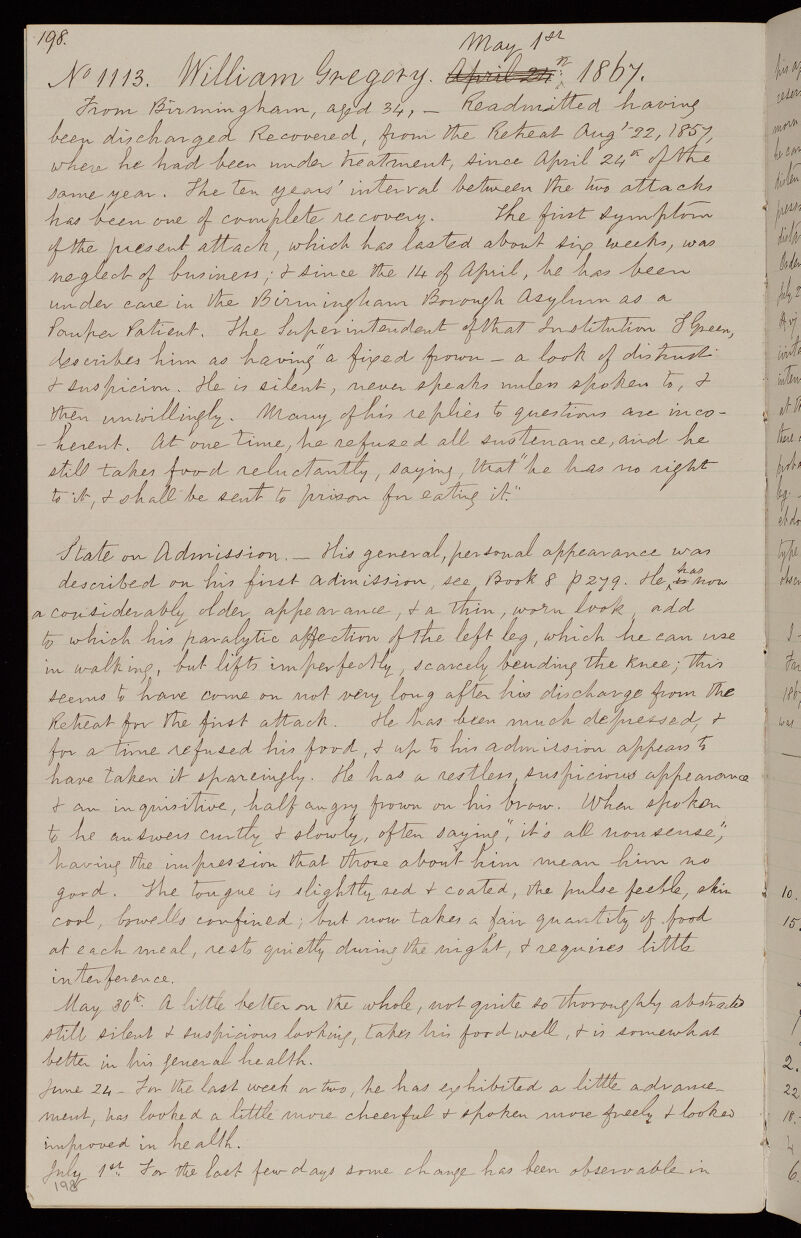 198.
May 1st
No 1113. William Gregory. April 24th 1867.
From Birmingham, aged 34, — Readmitted having
been discharged Recovered, from the Retreat Augt 22, 1857,
where he had been under treatment, since April 24th of the
same year. The ten years' interval between the two attacks
has been one of complete recovery. The first symptom
of the present attack, which has lasted about six weeks, was
neglect of business; & since the 14 of April, he has been
under care in the Birmingham Borough Asylum as a
Pauper Patient. The Superintendent of that Institution Green,
describes him as having "a fixed frown – a look of distrust
& suspicion. He is silent, never speaks unless spoken to, &
then unwillingly. Many of his replies to questions are inco-
-herent. At one time, he refused all sustenance, and he
still takes food reluctantly, saying, that "he has no right
to it, & shall be sent to prison for eating it."
State on Admission. — His general, personal appearance was
described on his first admission, see, Book 8 p 279. He is has now
a considerably older appearance, & a thin, worn look, add
to which his paralytic affection of the left leg, which he can use
in walking, but lifts imperfectly, scarcely bending the knee; this
seems to have come on not very long after his discharge from the
Retreat for the first attack. He has been much depressed, &
for a time refused his food, & up to his admission appears to
have taken it sparcingly. He has a restless, suspicious appearance
& an inquisitive, half angry frown on his brow. When spoken
to he answers curtly & slowly, often saying, "it's all nonsense",
having the impression that those about him mean him no
good. The tongue is slightly red & coated, the pulse feeble, skin
cool, bowells confined; but now takes a fair quantity of food
at each meal, rests quietly during the night, & requires little
interference.
May 30th. A little better on the whole, not quite so thoroughly abstracted
still silent & suspicious looking, takes his food well, & is somewhat
better in his general health.
June 24 – For the last week or two, he has exhibited a little advance-
ment, has looked a little more cheerful & spoken more freely & looked
improved in health.
July 1st. For the last few days some change has been observable in
198